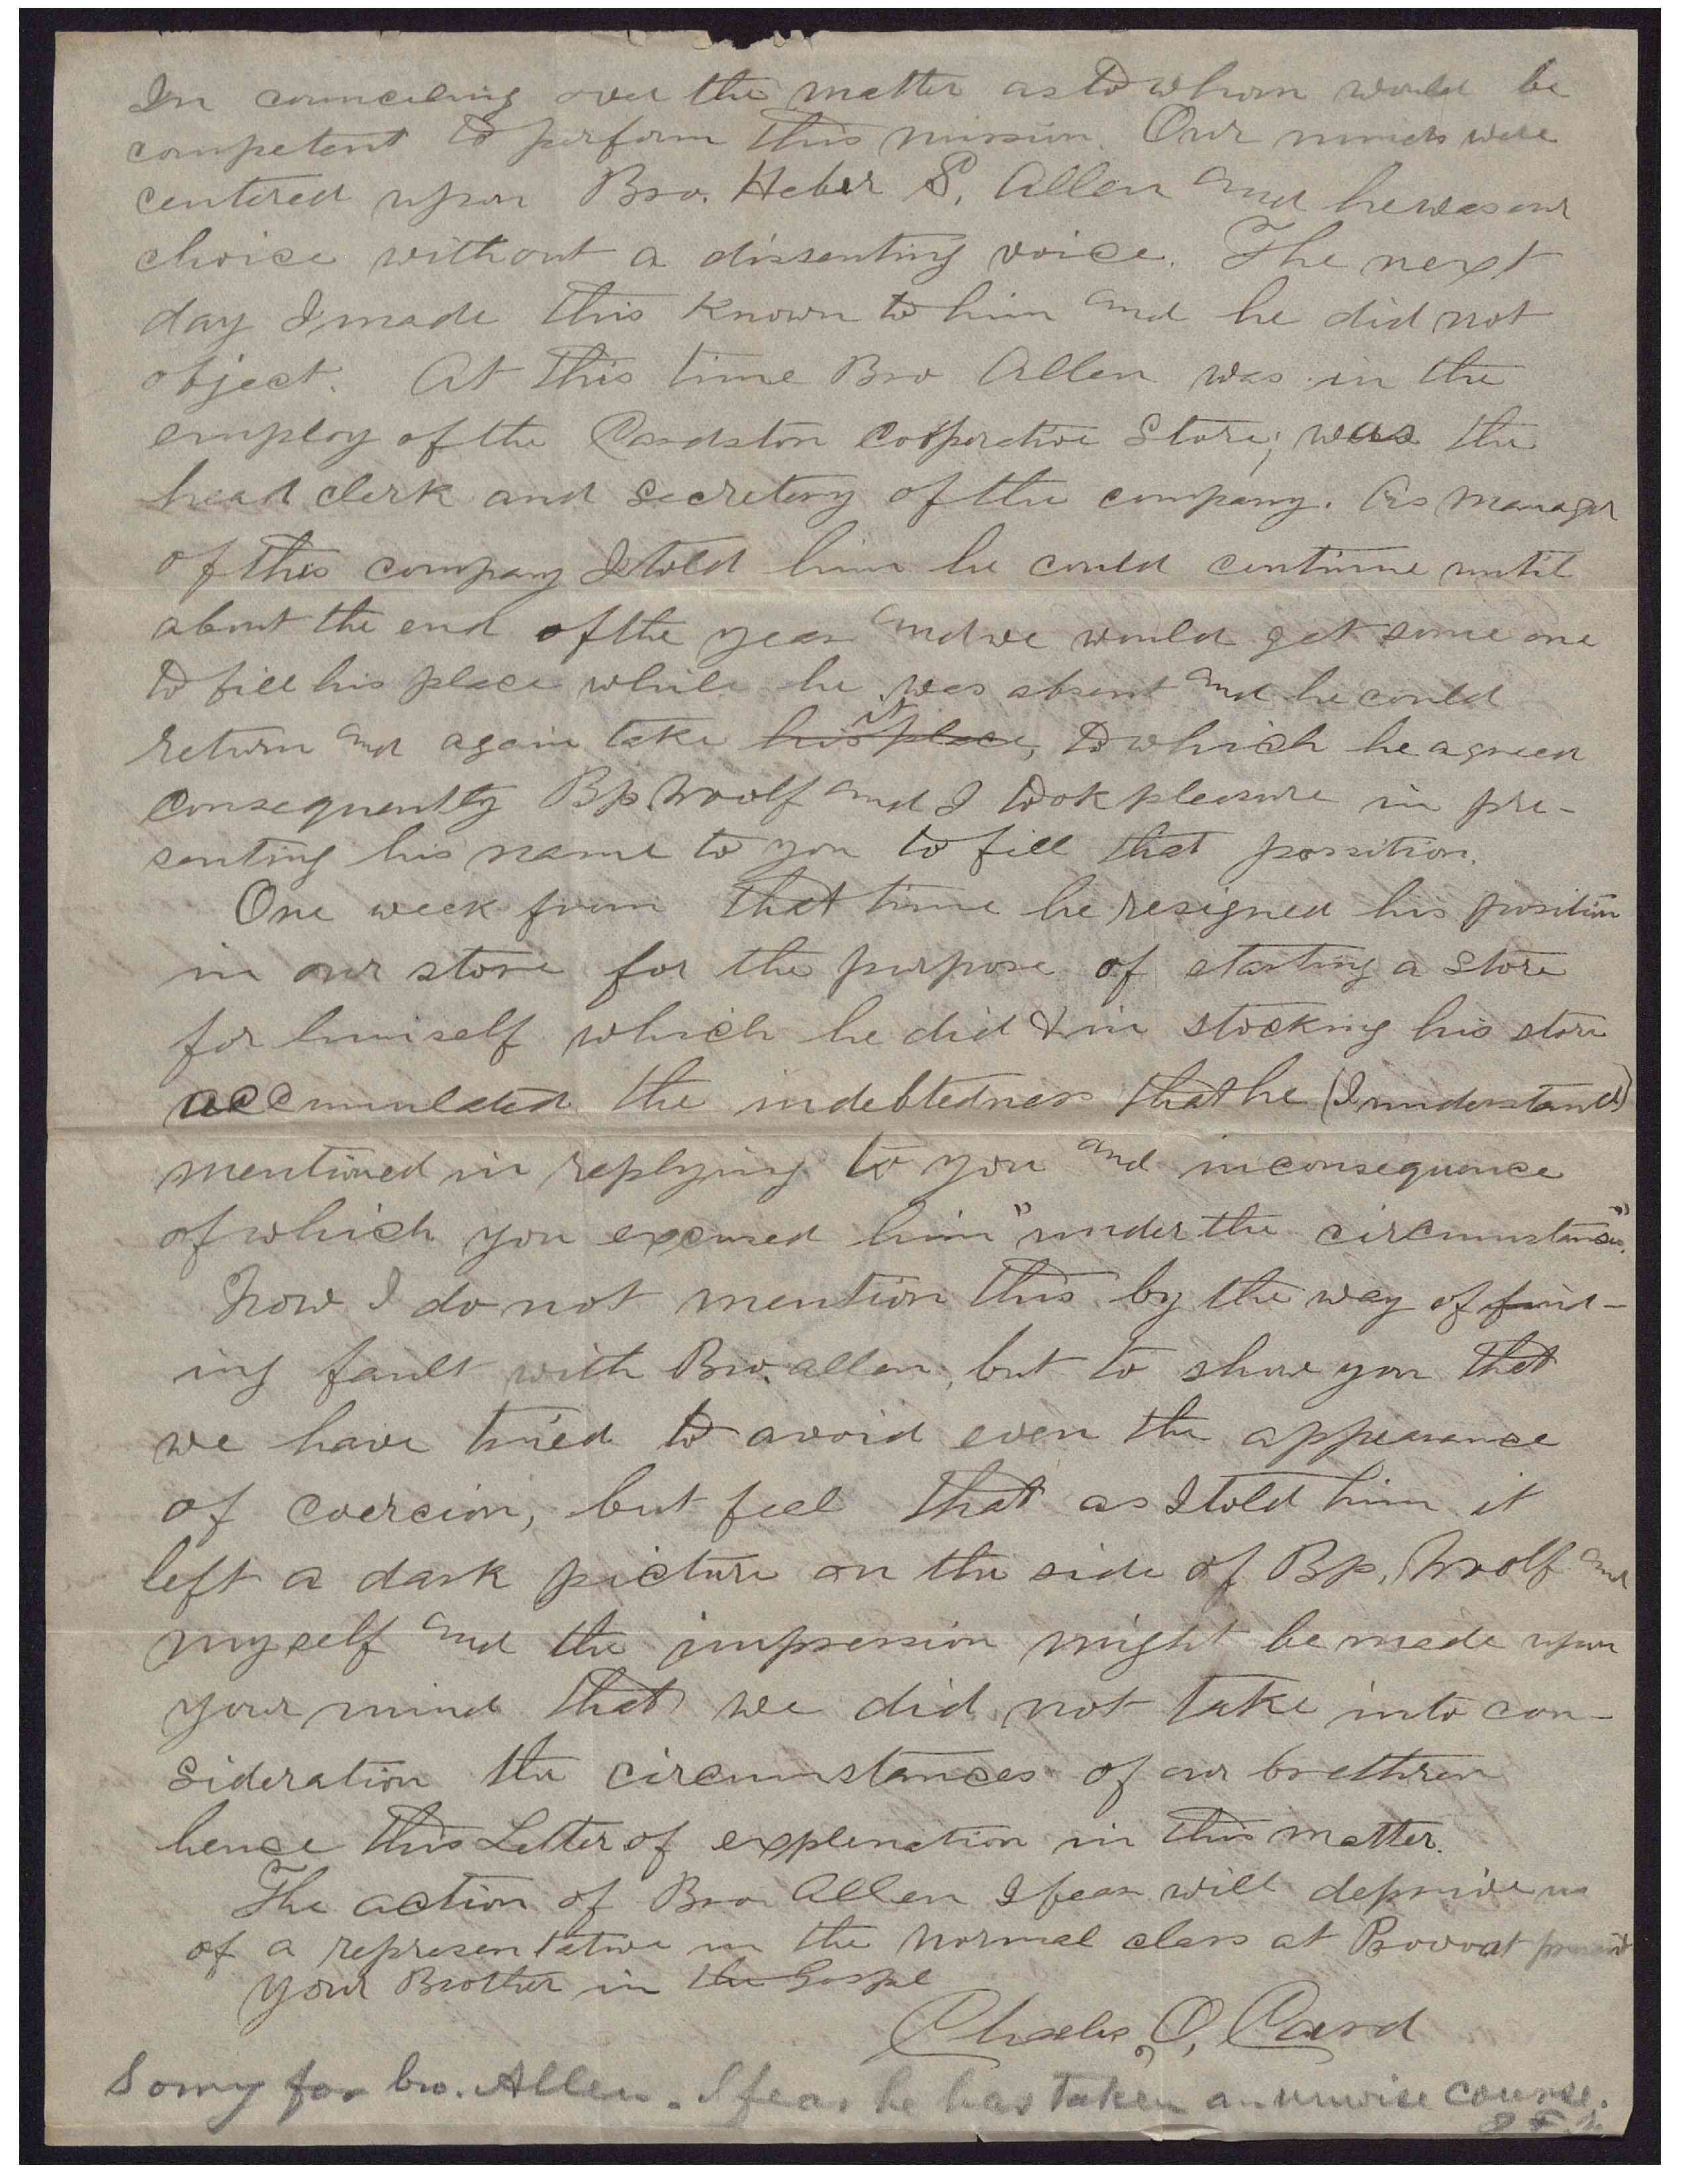 In counciling over the matter as to whom would be
competent to perform this mission. Our minds were
centered upon Bro. Heber S. Allen and he was our
choice without a dissenting voice. The next
day I made this known to him and he did not
object. At this time Bro Allen was in the
employ of the Cardston Cooperative Store; was the
head clerk and secretery of the company. As manager
of this company I told him he could continue until
about the end of the year and we would get some one
to fill his place while he was absent and he could
return and again take his place it, to which he agreed
consequently Bp. Woolf and I took pleasure in pre-
senting his name to you to fill that possition.
One week from that time he resigned his position
in our store for the purpose of starting a store
for himself which he did & in stocking his store
accumulated the indebtedness that he (I understand)
mentioned in replying to you and in consequence
of which you excused him "under the circumstances".
Now I do not mention this by the way of find-
ing fault with Bro. Allen, but to show you that
we have tried to avoid even the appearance
of coercion, but feel that as I told him it
left a dark picture on the side of Bp. Woolf and
myself and the impression might be made upon
your mind that we did not take into con-
sideration the circumstances of our brethren
hence this Letter of explenation in this matter.
The action of Bro Allen I fear will deprive us
of a representative in the normal class at Provo at
your Brother in the Gospel
Charles O. Card
Sorry for bro. Allen. I fear he has taken an unwise course.
J. F. S.